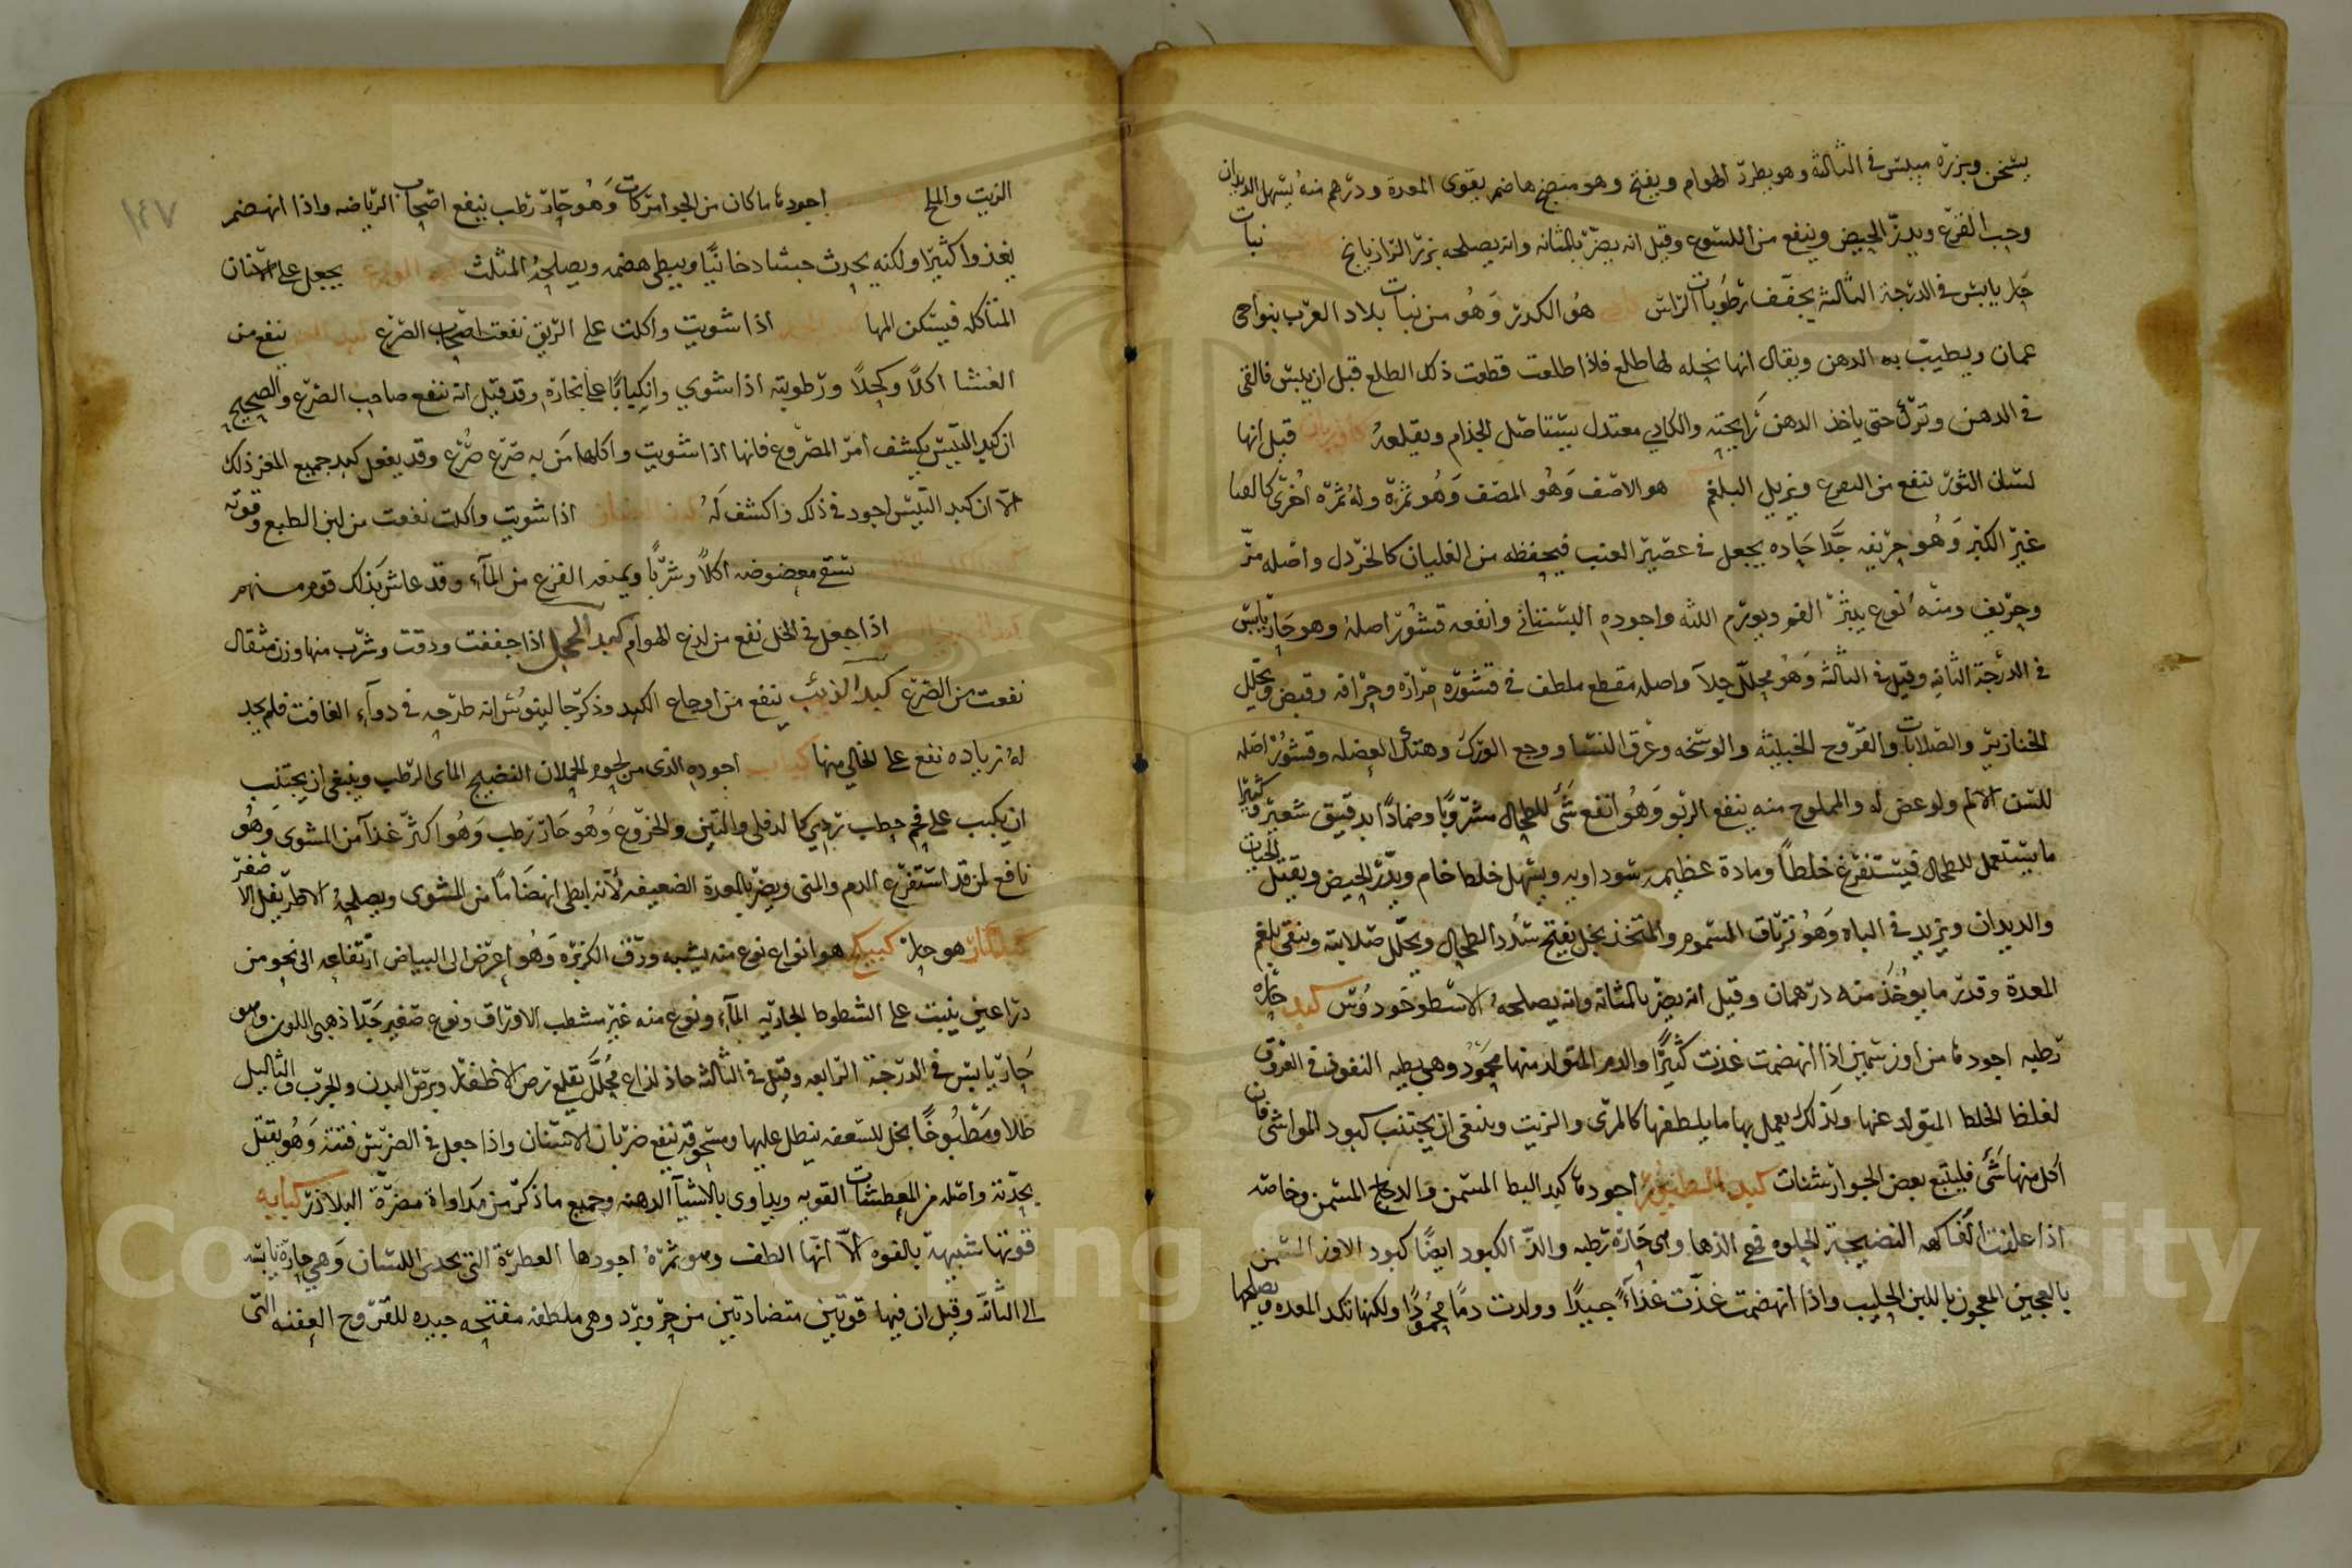 يسخن وبزره ميبس في الثالثة وهو يطرد الهوام ويفتح وهو منضج هاضم يقوي المعدة ودرهم منه يسهل الديدان
وحب القرع ويدر الحيض وينفع من اللسوع وقيل انه يضر بالمثانه وانه يصلحه بزر الرازيانج نبات
حار يابس في الدرجة الثالثة يجفف رطوبات الراس هو الكدر وهو من نبات بلاد العرب بنواحي
عمان ويطيب به الدهن ويقال انها نخله لها طلع فاذا طلعت قطعت ذلك الطلع قبل ان ييبس فالقي
في الدهن وترك حتى ياخذ الدهن رايحته والكادي معتدل يستاصل الجذام ويقلعه قيل انها
لسان الثور تنفع من الصرع ويزيل البلغم هو الاصف وهو المصف وهو ثمرة وله ثمره اخرى كالقثا
غير الكبر وهو حريفه جدا حاده يجعل في عصير العنب فيحفظه من الغليان كالخردل واصله مر
وحريف ومنه نوع يبثر الفم ويورم اللثه واجوده البستاني وانفعه قشور اصله وهو حار يابس
في الدرجة الثانيه وقيل في الثالثه وهو محلل جلا واصله مقطع ملطف في قشوره مراره وحرافه وقبض ويحلل
الخنازير والصلابات والقروح الخبيثه والوسخه وعرق النسا ووجع الورك وهتك العضله وقشور اصله
للسن الالم ولو عض له والمملوح منه ينفع الربو وهو انفع شي للطحال مشروبا وضمادا بدقيق شعير وكثيرا
ما يستعمل للطحال فيستفرغ خلطا ومادة عظيمه سوداويه ويسهل خلطا خام ويدر الحيض ويقتل الحيات
والديدان ويزيد في الباه وهو ترياق السموم والمتخذ بخل يفتح سدد الطحال ويحلل صلابته وينقي بلغم
المعدة وقدر ما يوخذ منه درهمان وقيل انه يضر بالمثانه وانه يصلحه الاسطوخودوس كبد حاره
رطبه اجودها من اوز سمين اذا انهضمت غذت كثيرا والدم المتولد منها محمود وهي بطيه النفوذ في العروق
لغلظ الخلط المتولد عنها وبذلك يعمل بها ما يلطفها كالمري والزيت وينبغي ان يجتنب كبود المواشي فان
اكل منها شي فليتبع بعض الجوارشنات كبد الطيور اجودها كبد البط المسمن والدجاج المسمن وخاصه
اذا علفت الفاكهه النضيجة الحلوه وهي حارة رطبه والذ الكبود ايضا كبود الاوز المسمن
بالعجين المعجون باللبن الحليب واذا انهضمت غذت غذاء جيدا وولدت دما محمودا ولكنها تكد المعده ويصلحها
الزيت والملح اجودها ما كان من الحوامر كات وهو حار رطب ينفع اصحاب الرياضه واذا انهضم
يغذوا كثيرا ولكنه يحدث جشا دخانيا ويبطي هضمه ويصلحه المثلث الورع يجعل على الاسنان
المتاكله فيسكن المها اذا شويت واكلت على الريق نفعت اصحاب الصرع ينفع من
الغشا اكلا وكحلا ورطوبته اذا شوي وانكبابا على بخاره وقد قيل انه ينفع صاحب الصرع والصحيح
ان كبد التيس يكشف امر المصروع فانها اذا شويت واكلها من به صرع صرع وقد يفعل كبد جميع المعز ذلك
الا ان كبد التيس اجود في ذلك واكشف له اذا شويت واكلت نفعت من لين الطبع وقوته
تسقي معضوضه اكلا وشربا ويمنعه الفزع من الماء وقد عاش بذلك قوم منهم
اذا جعل في الخل نفع من لذع الهوام كبد الحجل اذا جففت ودقت وشرب منها وزن مثقال
نفعت من الصرع كبد الذيب ينفع من اوجاع الكبد وذكر جالينوس انه طرحه في دواء الغافت فلم يجد
له زياده نفع على الخالي منها كباب اجوده الذي من لحوم الحملان النضيج الماي الرطب وينبغي ان يجتنب
ان يكبب على فحم حطب ردي كالدفلى والتين والخروع وهو حار رطب وهو اكثر غذا من المشوي وهو
نافع لمن قد استفرغ الدم والمني ويضر بالمعدة الضعيفه لانه ابطى انهضاما من المشوي ويصلحه الاطريفل الاصغر
هو حار كبيكج هو انواع نوع منه يشبه ورق الكزبره وهو اعرض الى البياض ارتفاعه الى نحو من
ذراعين ينبت على الشطوط الجاريه الماء ونوع منه غير مشطب الاوراق ونوع صغير جدا ذهبي اللون وهو
حار يابس في الدرجة الرابعه وقيل في الثالثه حاد لذاع محلل يقلع برص الاظفار وبرص البدن والجرب والثاليل
طلا ومطبوخا بخل للسعفه ينطل عليها ومسحوقه ينفع ضربان الاسنان واذا جعل في الضرس فتته وهو يقتل
بحدته واصله من المعطشات القويه ويداوى بالاشيا الدهنه وجميع ما ذكر من مداواة مضرة البلاذر كبابه
قوتها شبيهة بالفوه الا انها الطف وهو ثمره اجودها العطرة التي تحذي اللسان وهي حارة يابسه
الى الثالثه وقيل ان فيها قوتين متضادتين من حر وبرد وهي ملطفه مفتحه جيده للقروح العفنه التي
١٤٧
Copyright © King Saud University